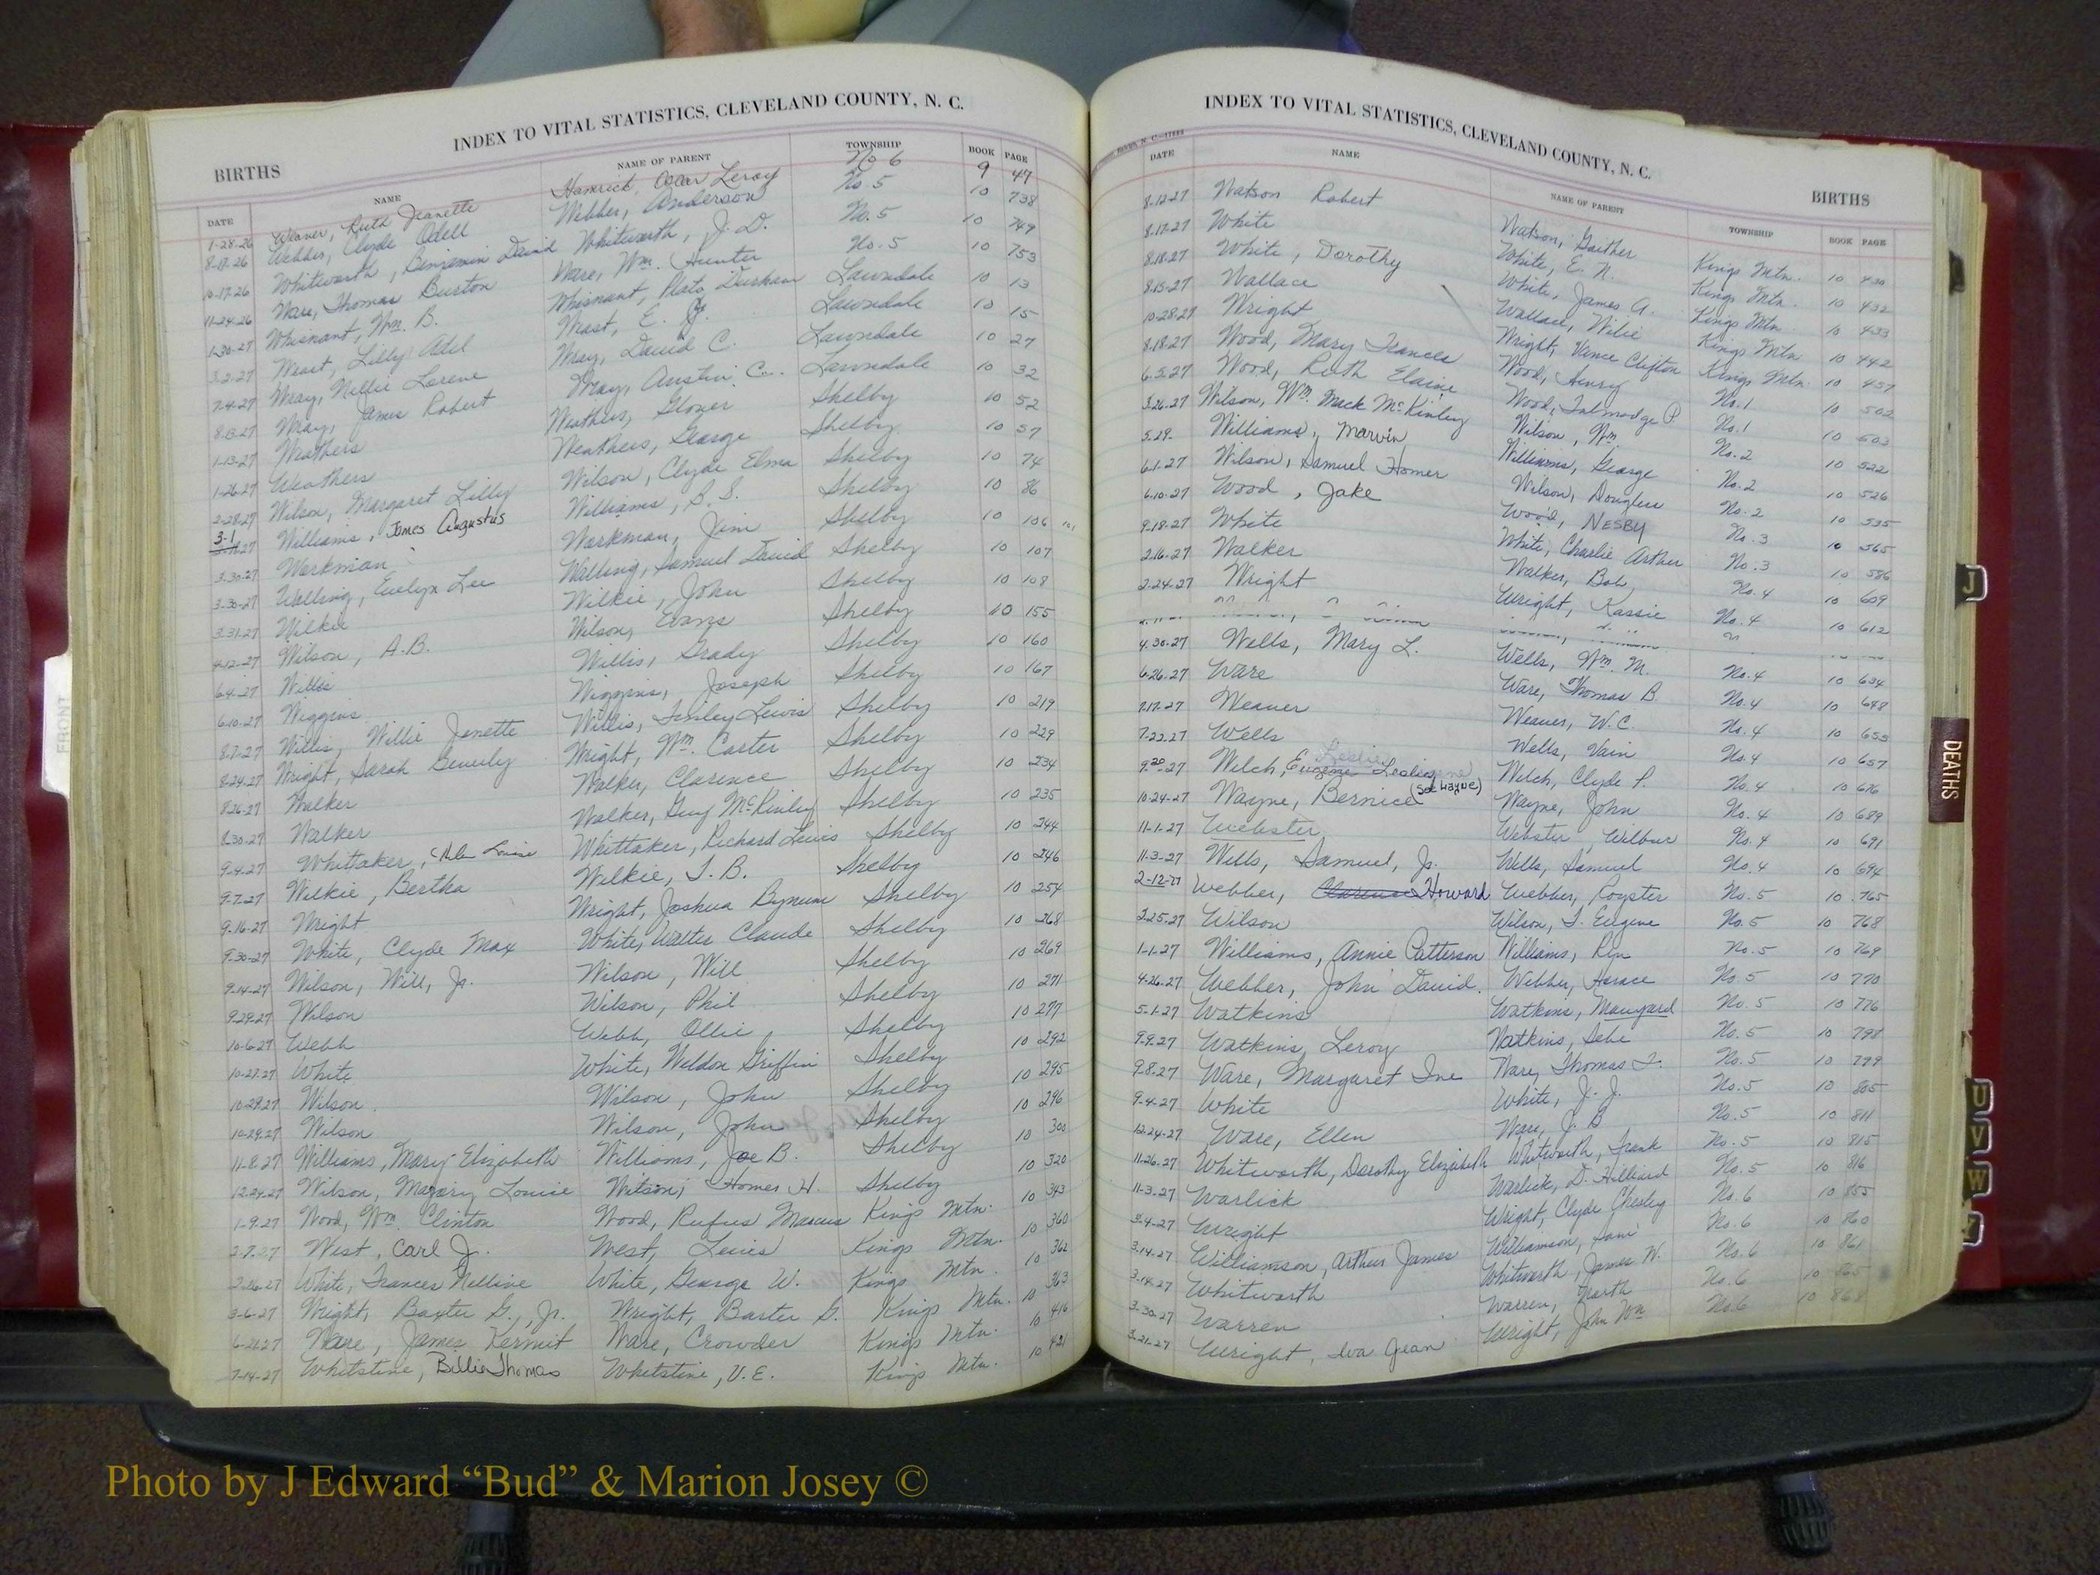 INDEX TO VITAL STATISTICS, CLEVELAND COUNTY, N. C.
BIRTHS
DATE NAME NAME OF PARENT TOWNSHIP BOOK PAGE
1-28-26 Weaver, Ruth Jeanette Hamrick, Oscar Leroy No 6 9 47
8-17-26 Webber, Clyde Odell Webber, Anderson No. 5 10 738
10-17-26 Whitworth, Benjamin David Whitworth, J. D. No. 5 10 749
11-24-26 Ware, Thomas Burton Ware, Wm. Hunter No. 5 10 753
1-30-27 Whisnant, Wm. B. Whisnant, Plato Durham Lawndale 10 13
3-2-27 West, Lilly Adel West, E. Lawndale 10 15
7-4-27 Wray, Nellie Lorene Wray, David C. Lawndale 10 27
8-13-27 Wray, James Robert Wray, Austin C. Lawndale 10 32
1-13-27 Weathers Weathers, Glover Shelby 10 52
1-26-27 Weathers Weathers, George Shelby 10 57
2-28-27 Wilson, Margaret Lilly Wilson, Clyde Elma Shelby 10 74
3-1 27 Williams, James Augustus Williams, B. S. Shelby 10 86
3-30-27 Workman Workman, Jim Shelby 10 106
3-30-27 Walling, Evelyn Lee Walling, Samuel David Shelby 10 107
3-31-27 Wilkie Wilkie, John Shelby 10 108
4-12-27 Wilson, A.B. Wilson, Evans Shelby 10 155
6-4-27 Willis Willis, Grady Shelby 10 160
6-10-27 Wiggins Wiggins, Joseph Shelby 10 167
8-7-27 Willis, Willie Jenette Willis, Finley Lewis Shelby 10 219
8-24-27 Wright, Sarah Beverly Wright, Wm. Carter Shelby 10 229
8-26-27 Walker Walker, Clarence Shelby 10 234
8-30-27 Walker Walker, Guy McKinley Shelby 10 235
9-4-27 Whittaker, Louise Whittaker, Richard Lewis Shelby 10 244
9-7-27 Wilkie, Bertha Wilkie, T. B. Shelby 10 246
9-16-27 Wright Wright, Joshua Bynum Shelby 10 254
9-30-27 White, Clyde Max White, Walter Claude Shelby 10 268
9-14-27 Wilson, Will, Jr. Wilson, Will Shelby 10 269
9-29-27 Wilson Wilson, Phil Shelby 10 271
10-6-27 Webb Webb, Ollie Shelby 10 277
10-27-27 White White, Weldon Griffin Shelby 10 292
10-29-27 Wilson Wilson, John Shelby 10 295
10-29-27 Wilson Wilson, John Shelby 10 296
11-8-27 Williams, Mary Elizabeth Williams, Joe B. Shelby 10 300
12-24-27 Wilson, Margary Louise Wilson, Homer H. Shelby 10 320
1-9-27 Wood, Wm. Clinton Wood, Rufus Marcus Kings Mtn. 10 343
2-7-27 West, Carl Jr. West, Lewis Kings Mtn. 10 360
2-26-27 White, Frances Nelline White, George W. Kings Mtn. 10 362
3-6-27 Wright, Baxter G., Jr. Wright, Baxter G. Kings Mtn. 10 363
6-26-27 Ware, James Kermit Ware, Crowder Kings Mtn. 10 416
7-14-27 Whitstine, Billie Thomas Whitstine, V. E. Kings Mtn. 10 421
INDEX TO VITAL STATISTICS, CLEVELAND COUNTY, N. C.
BIRTHS
DATE NAME NAME OF PARENT TOWNSHIP BOOK PAGE
8-12-27 Watson Robert Watson, Gaither Kings Mtn. 10 430
8-17-27 White White, E. N. Kings Mtn. 10 432
8-18-27 White, Dorothy White, James A. Kings Mtn 10 433
8-15-27 Wallace Wallace, Wilie Kings Mtn 10 442
10-28-27 Wright Wright, Vance Clifton Kings Mtn 10 457
8-18-27 Wood, Mary Frances Wood, Henry No. 1 10 502
6-5-27 Wood, Ruth Elaine Wood, Talmadge P No. 1 10 503
3-26-27 Wilson, Wm. Mack McKinley Wilson, Wm. No. 2 10 522
5-29- Williams, Marvin Williams, George No. 2 10 526
6-1-27 Wilson, Samuel Homer Wilson, Douglas No. 2 10 535
6-10-27 Wood, Jake Wood, NESBY No. 3 10 565
9-18-27 White White, Charlie Arthur No. 3 10 586
2-16-27 Walker Walker, Bob No. 4 10 609
2-24-27 Wright Wright, Kassie No. 4 10 612
4-30-27 Wells, Mary L. Wells, Wm. M. No. 4 10 634
6-26-27 Ware Ware, Thomas B. No. 4 10 648
7-17-27 Weaver Weaver, W. C. No. 4 10 655
7-22-27 Wells Wells, Vain No. 4 10 657
9-20-27 Welch, Eugene Leslie Welch, Clyde P. No. 4 10 676
10-24-27 Wayne, Bernice (See Wayne) Wayne, John No. 4 10 689
11-1-27 Webster Webster, Wilbur No. 4 10 691
11-3-27 Wells, Samuel, Jr. Wells, Samuel No. 4 10 694
2-12-27 Webber, Clarence Howard Webber, Royster No. 5 10 765
2-25-27 Wilson Wilson, T. Eugene No. 5 10 768
1-1-27 Williams, Annie Patterson Williams, No. 5 10 769
4-26-27 Webber, John David Webber, Horace No. 5 10 770
5-1-27 Watkins Watkins, Maugard No. 5 10 776
9-9-27 Watkins, Leroy Watkins, No. 5 10 798
9-8-27 Ware, Margaret Ine Ware, Thomas F. No. 5 10 799
9-4-27 White White, J. J. No. 5 10 805
12-24-27 Ware, Ellen Ware, J. B No. 5 10 811
11-26-27 Whitworth, Dorothy Elizabeth Whitworth, Frank No. 5 10 815
11-3-27 Warlick Warlick, D. Hilliard No. 5 10 816
3-4-27 Wright Wright, Clyde Chesley No. 6 10 855
3-14-27 Williamson, Arthur James Williamson, Tom No. 6 10 860
3-14-27 Whitworth Whitworth, James W. No. 6 10 861
3-30-27 Warren Warren, No. 6 10 865
3-21-27 Wright, Iva Jean Wright, John Wm No. 6 10 868
FRONT
J
DEATHS
U
V
W
Y
Photo by J Edward “Bud” & Marion Josey ©